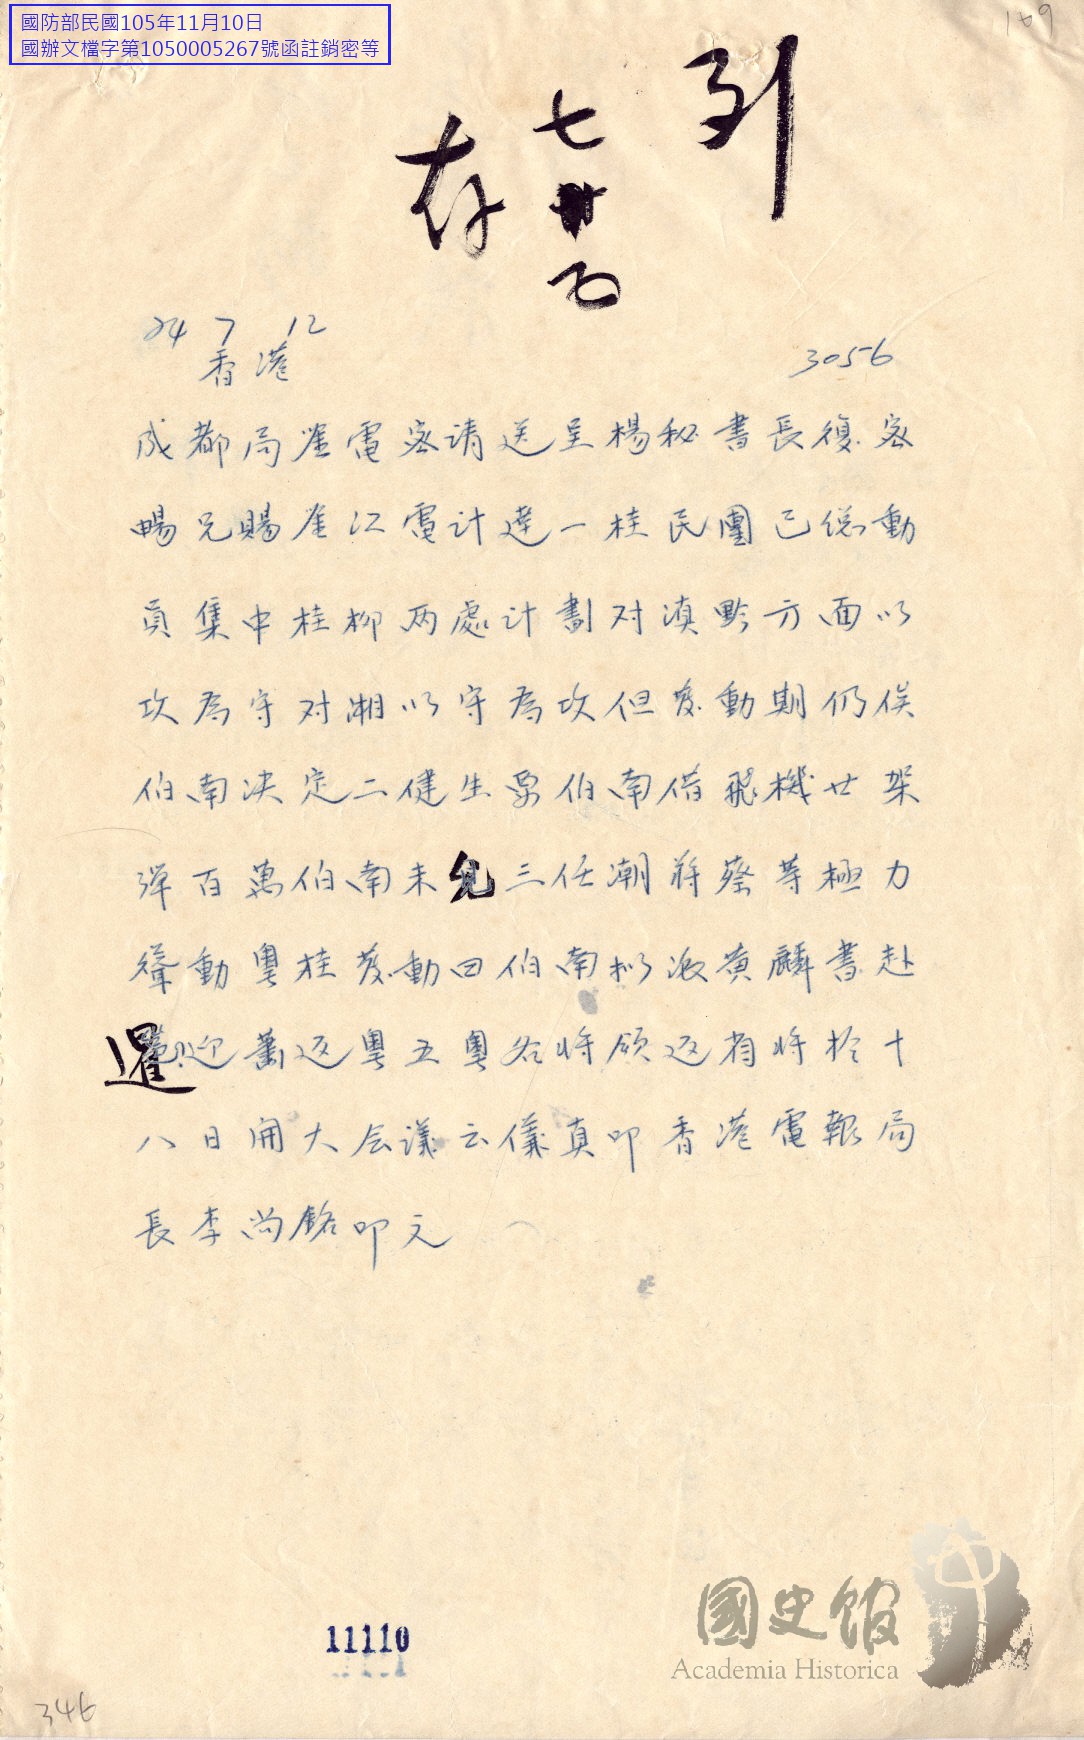 國防部民國105年11月10日
國辦文檔字第1050005267號函註銷密等
169
列
七 廿
存
24 7 12
香港
3056
成都局崔電密請送呈楊秘書長復密
暢兄賜崔江電計達一桂民團已總動
員集中桂柳兩處計劃对滇黔方面以
攻為守对湘以守為攻但發動期仍俟
伯南決定二健生要伯南借飛機廿架
彈百萬伯南未允三任潮蔣蔡等極力
聳動粵桂發動四伯南拟派黃麟書赴
暹迎蕭返粵五粵各將領返省將於十
八日開大会議云儀真叩香港電報局
長李尚銘叩元
11110
346
國史館
Academia Historica